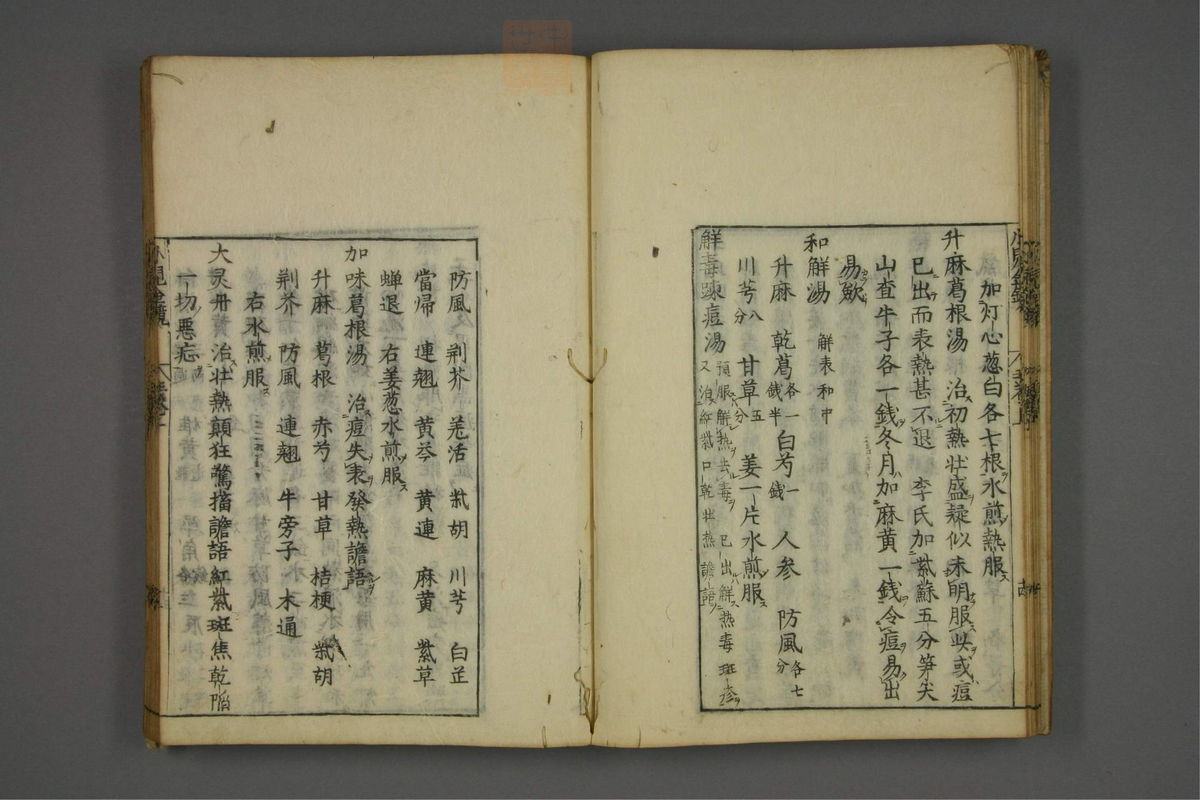 加灯心葱白各七根水煎熱服
升麻葛根湯 治初熱壮盛疑似未明服此或痘
已出而表熱甚不退 李氏加紫蘇五分笋尖
山査牛子各一錢冬月加麻黄一錢令痘易出
易歛
和解湯 解表和中
升麻 乾葛各一錢半 白芍一錢 人參 防風各七分
川芎八分 甘草五分 姜一片水煎服
解毒踈痘湯 預服解熱去毒 已出解熱毒斑疹
又治紅紫口乾壮熱譫語
防風 荆芥 羌活 柴胡 川芎 白芷
當帰 連翹 黄芩 黄連 麻黄 紫草
蝉退 右姜葱水煎服
加味葛根湯 治痘失表發熱譫語
升麻 葛根 赤芍 甘草 桔梗 柴胡
荆芥 防風 連翹 牛旁子 木通
右水煎服
大灵丹 治壮熱顛狂驚搐譫語紅紫斑焦乾陷
一切悪症